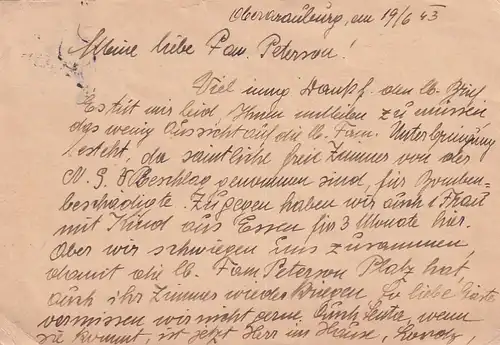 Oberdrauburg, am 19/6 43
Meine liebe Fam. Peterson!
Viel innig Dank f. den lb. Brief
Es tut mir leid Ihnen mitteilen zu müssen
das wenig Aussicht auf die lb. Fam. Unterbringung
besteht, da sämtliche freie Zimmer von der
N. S. V Beschlag genommen sind, für Bomben-
beschädigte. Zugegen haben wir auch 1 Frau
mit Kind aus Essen für 3 Monate hier.
Aber wir schwiegen uns zusammen,
damit die lb. Fam Peterson Platz hat,
auch ihr Zimmer wieder kriegen. So liebe Gäste
vermissen wir nicht gerne. Auch Leute, wenn
sie kommt, ist jetzt Herr im Hause,